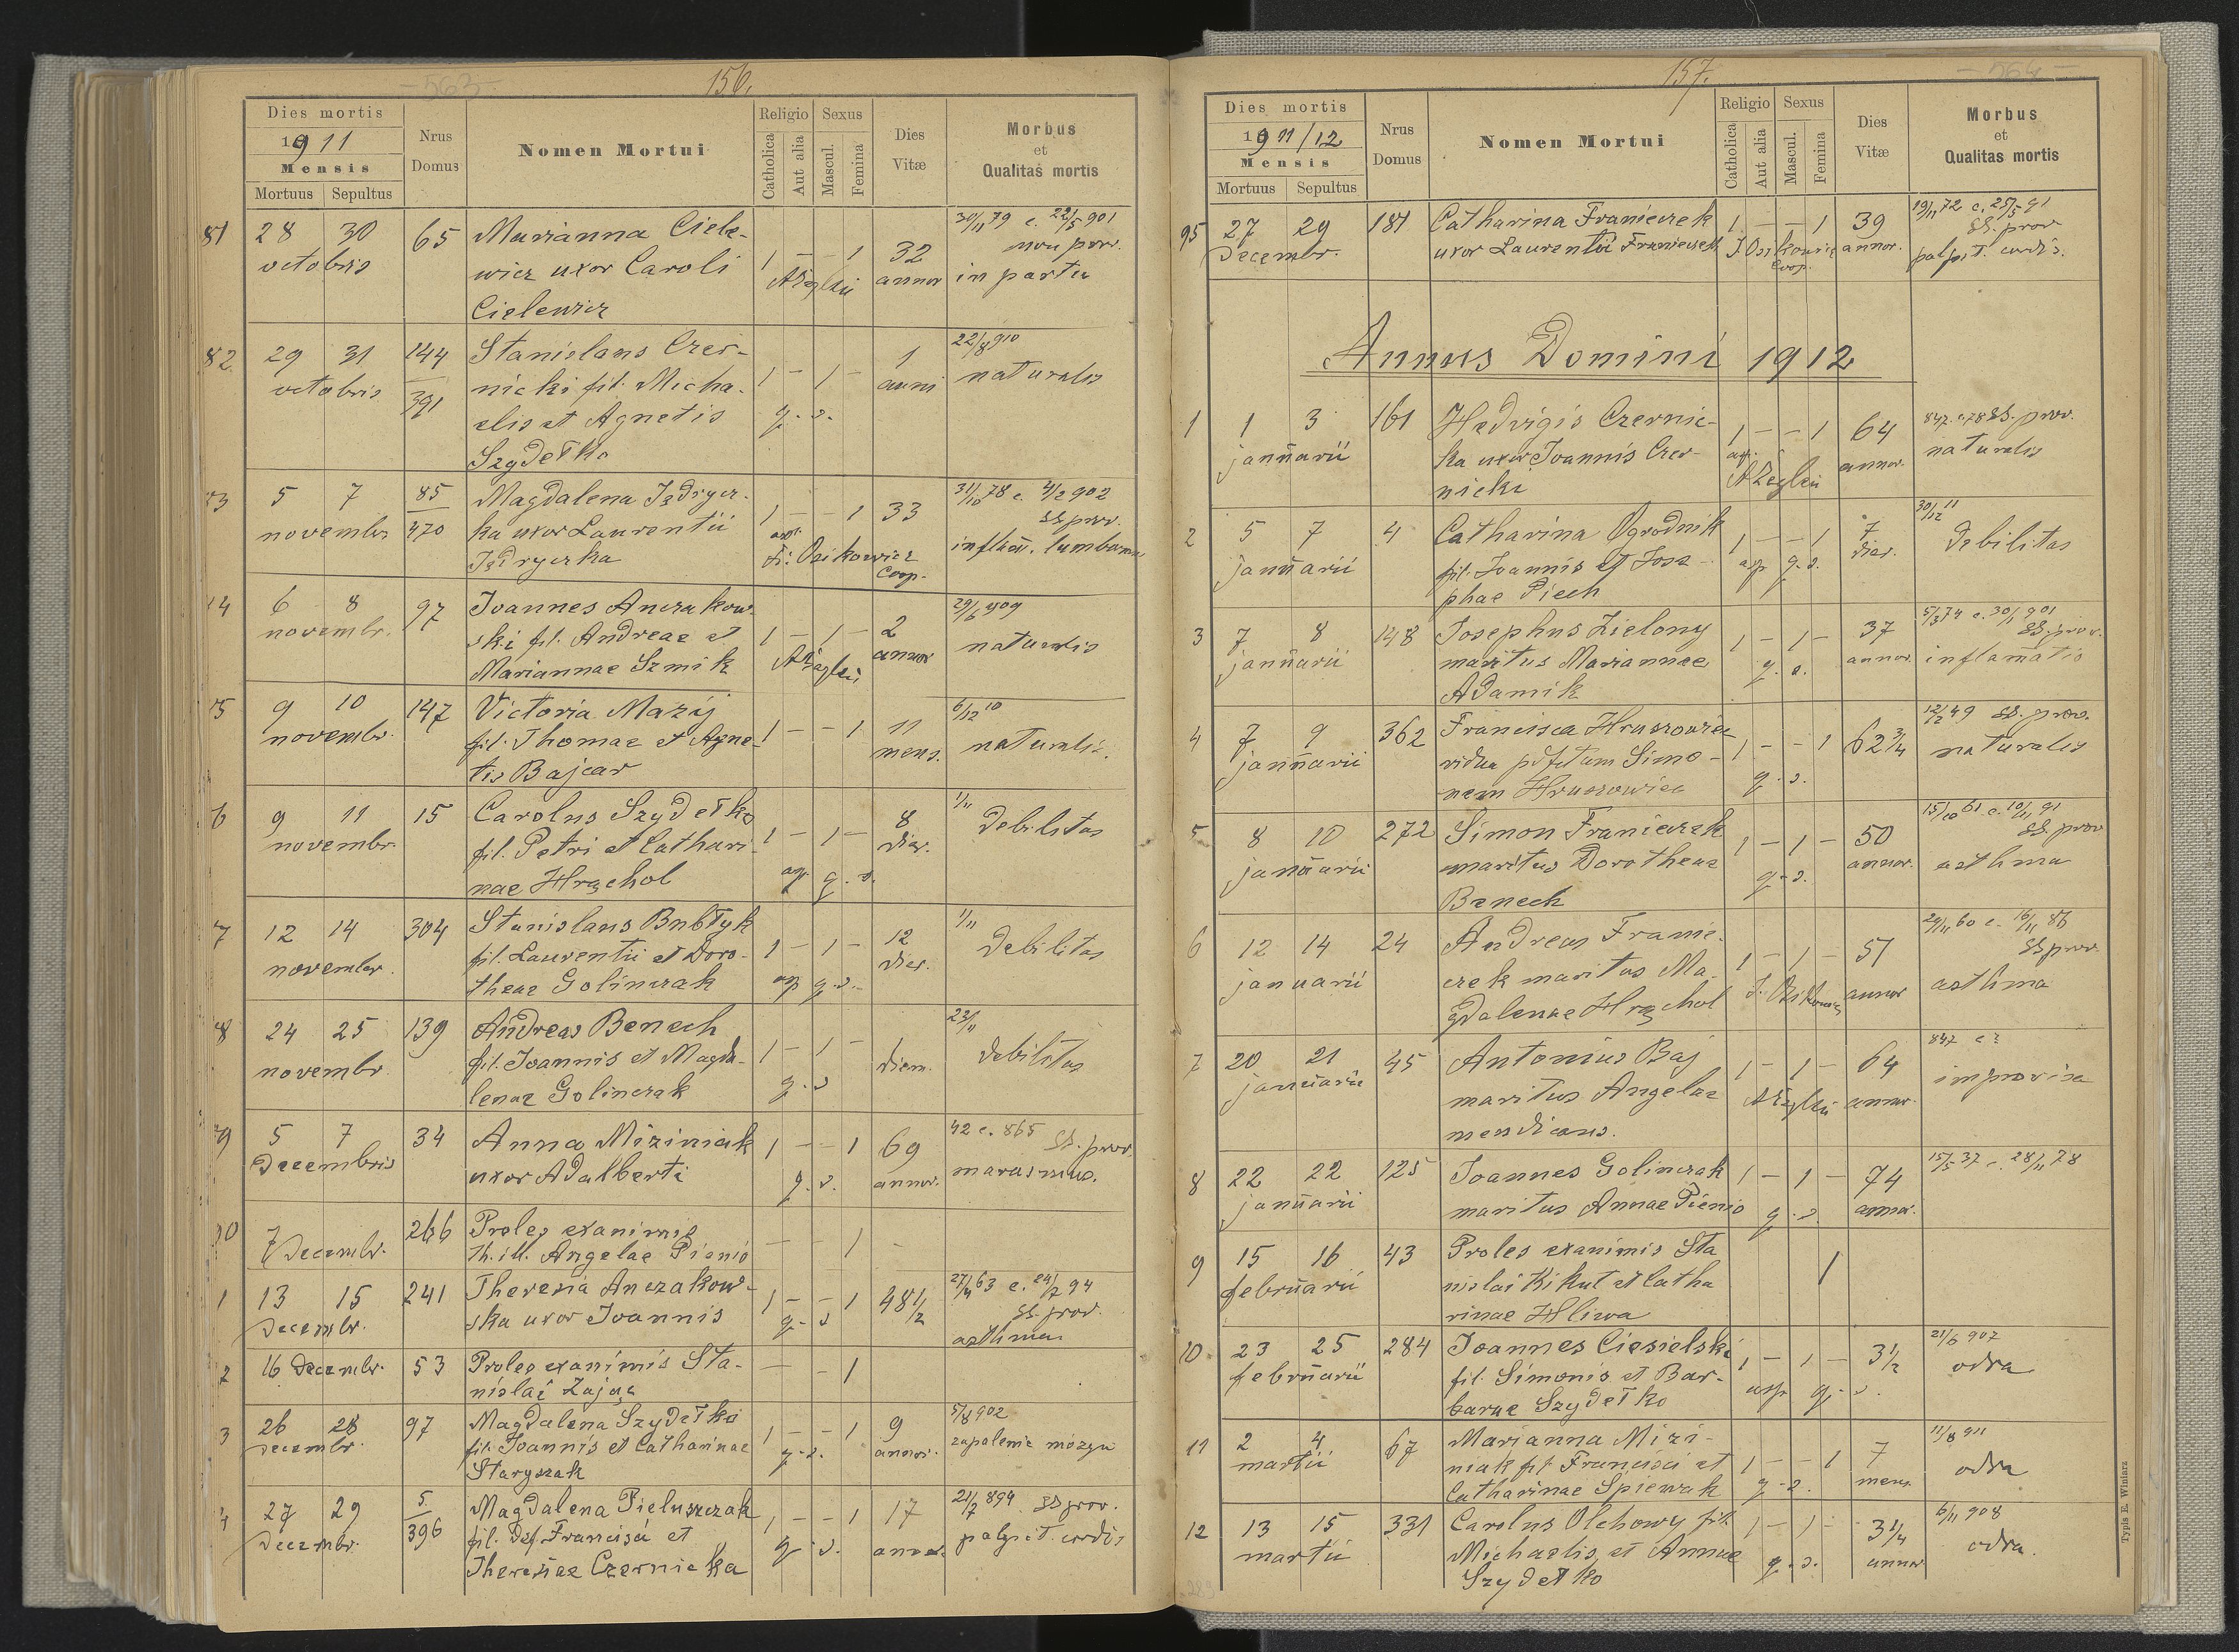 - 563 -
156.
Dies mortis
1911
Mensis
Mortuus Sepultus
Nrus Domus
Nomen Mortui
Religio
Catholica
Aut alia
Sexus
Mascul.
Femina
Dies Vitæ
Morbus
et
Qualitas mortis
81 28 30 65 Marianna Ciele- 30/11 79 c. 22/5 901
octobris wicz uxor Caroli 1 - - 1 32 non prov.
Cielewicz annor in partu
82 29 31 144 Stanislaus Czer- 22/8 910
octobris 391 nicki fil. Micha- 1 - 1 - 1 anni naturalis
elis et Agnetis q. s.
Szydełko
83 5 7 85 Magdalena Jędrycz- 31/10 78 c. 4/2 902
novembr 470 ka uxor Laurentii 1 - - 1 33 SS prov.
Jędryczka Osikowicz Coop. inflam.
84 6 8 97 Joannes Anczakow- 29/6 909
novembr. ski fil. Andreae et 1 - 1 - 2 annor naturalis
Mariannae Szmik
85 9 10 147 Victoria Mazij 6/12 10
novembr. fil. Thomae et Agne- 1 - - 1 11 mens. naturalis
tis Bajcar
6 9 11 15 Carolus Szydełko 1/11
novembr. fil. Petri et Cathari- 1 - 1 - 8 dier. debilitas
nae Hrąchol asp q. s.
7 12 14 304 Stanislaus Bubłyk 1/11
novembr. fil. Laurentii et Doro- 1 - 1 - 12 dier. debilitas
theae Golinczak asp q. s.
8 24 25 139 Andreas Benech 23/11
novembr. fil. Joannis et Magda- 1 - 1 - 1 diem. debilitas
lenae Golinczak q. s
9 5 7 34 Anna Miziniak 1 - - 1 69 42 c. 865 SS. prov.
Decembris uxor Adalberti q. s. annor. marasmus.
90 7 Decembr. 266 Proles exanimis - - 1 -
th. ill. Angelae Pienio
1 13 15 241 Theresia Anczakow- 1 - - 1 48 1/2 27/4 63 c. 24/7 94
Decembr. ska uxor Joannis q. s SS. prov.
asthma
2 16 Decembr. 53 Proles exanimis Sta- - - 1
nislai Zając
3 26 28 97 Magdalena Szydełko 1 - - 1 9 5/8 902
Decembr. fil. Joannis et Catharinae q. s. annor. zapalenie mózgu
Staryszak
4 27 29 5. Magdalena Pieluszczak 1 - - 1 17 21/7 894 SS prov.
Decembr. 396 fil. def. Francisci et q. s. annor. palpit. cordis
Theresiae Czernicka
- 564 -
157.
Dies mortis
1911/12
Mensis
Mortuus Sepultus
Nrus Domus
Nomen Mortui
Religio
Catholica
Aut alia
Sexus
Mascul.
Femina
Dies Vitæ
Morbus
et
Qualitas mortis
95 27 29 181 Catharina Franiczek 1 - - 1 39 19/11 72 c. 25/5 91
Decembr. uxor Laurentii Franiczek J. Osikowicz Coop. annor. SS. prov
palpit. cordis.
Annus Domini 1912
1 1 3 161 Hedvigis Czernic- 1 - - 1 64 847. c. 78 SS. prov.
januarii ka uxor Joannis Czer- annor. naturalis
nicki
2 5 7 4 Catharina Ogrodnik 1 - - 1 7 30/12 11
januarii fil. Joannis et Jose- asp q. s. dier. debilitas
phae Piech
3 7 8 148 Josephus Zielony 1 - 1 - 37 5/3 74 c. 30/1 901
januarii maritus Mariannae q. s. annor. SS. prov.
Adamik inflamatio
4 7 9 362 Francisca Hruszowiec 1 - - 1 62 3/4 12/2 49 SS. prov.
januarii vidua p. defctum Simo- q. s. naturalis
nem Hruszowiec
5 8 10 272 Simon Franiczek 1 - 1 - 50 15/10 61 c. 10/11 91
januarii maritus Dorotheae q. s. annor. SS. prov
Benech asthma
6 12 14 24 Andreas Franic- 1 - 1 - 51 29/11 60 c. 16/11 86
januarii czek maritus Ma- J. Osikowicz annor SS prov.
gdalenae Hrąchol asthma
7 20 21 45 Antonius Baj 1 - 1 - 64 847 c ?
januarii maritus Angelae annor. improvisa
mendicans.
8 22 22 125 Joannes Golinczak 1 - 1 - 74 15/5 37 c. 28/11 78
januarii maritus Annae Pienio q. s. annor.
9 15 16 43 Proles exanimis Sta 1
februarii nislai Kikut et Catha
rinae Hliwa
10. 23 25 284 Joannes Ciesielski 1 - 1 - 3 1/2 21/6 907
februarii fil. Simonis et Bar- asp q. s. odra
barae Szydełko
11 2 4 67 Marianna Mizi- 1 - - 1 7 11/8 911
martii niak fil. Francisci et q. s. mens. odra
Catharinae Śpiewak
12 13 15 331 Carolus Olchowy fil. 1 - 1 - 3 1/4 6/11 908
martii Michaelis et Annae q. s. annor odra.
Szydełko
Typis E. Winiarz